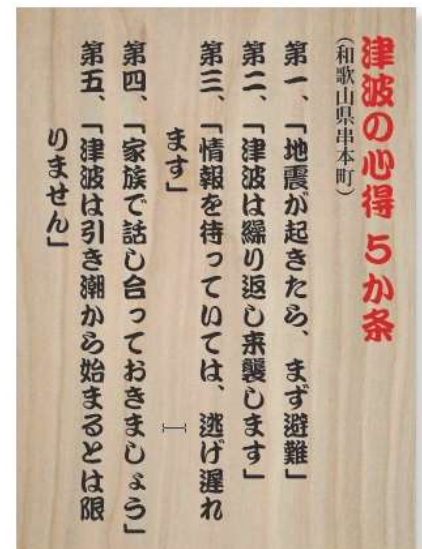 津波の心得 5か条
(和歌山県串本町)
第一、「地震が起きたら、まず避難」
第二、「津波は繰り返し来襲します」
第三、「情報を待っていては、逃げ遅れ
ます」
第四、「家族で話し合っておきましょう」
第五、「津波は引き潮から始まるとは限
りません」